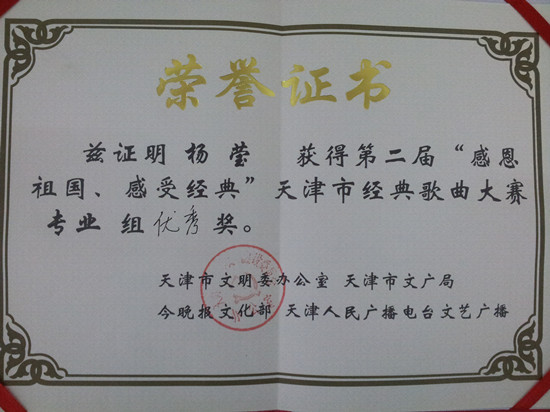 荣誉证书
兹证明 杨 莹 获得第二届“感恩
祖国、感受经典”天津市经典歌曲大赛
专业 组优秀奖。
天津市文明委办公室 天津市文广局
今晚报文化部 天津人民广播电台文艺广播